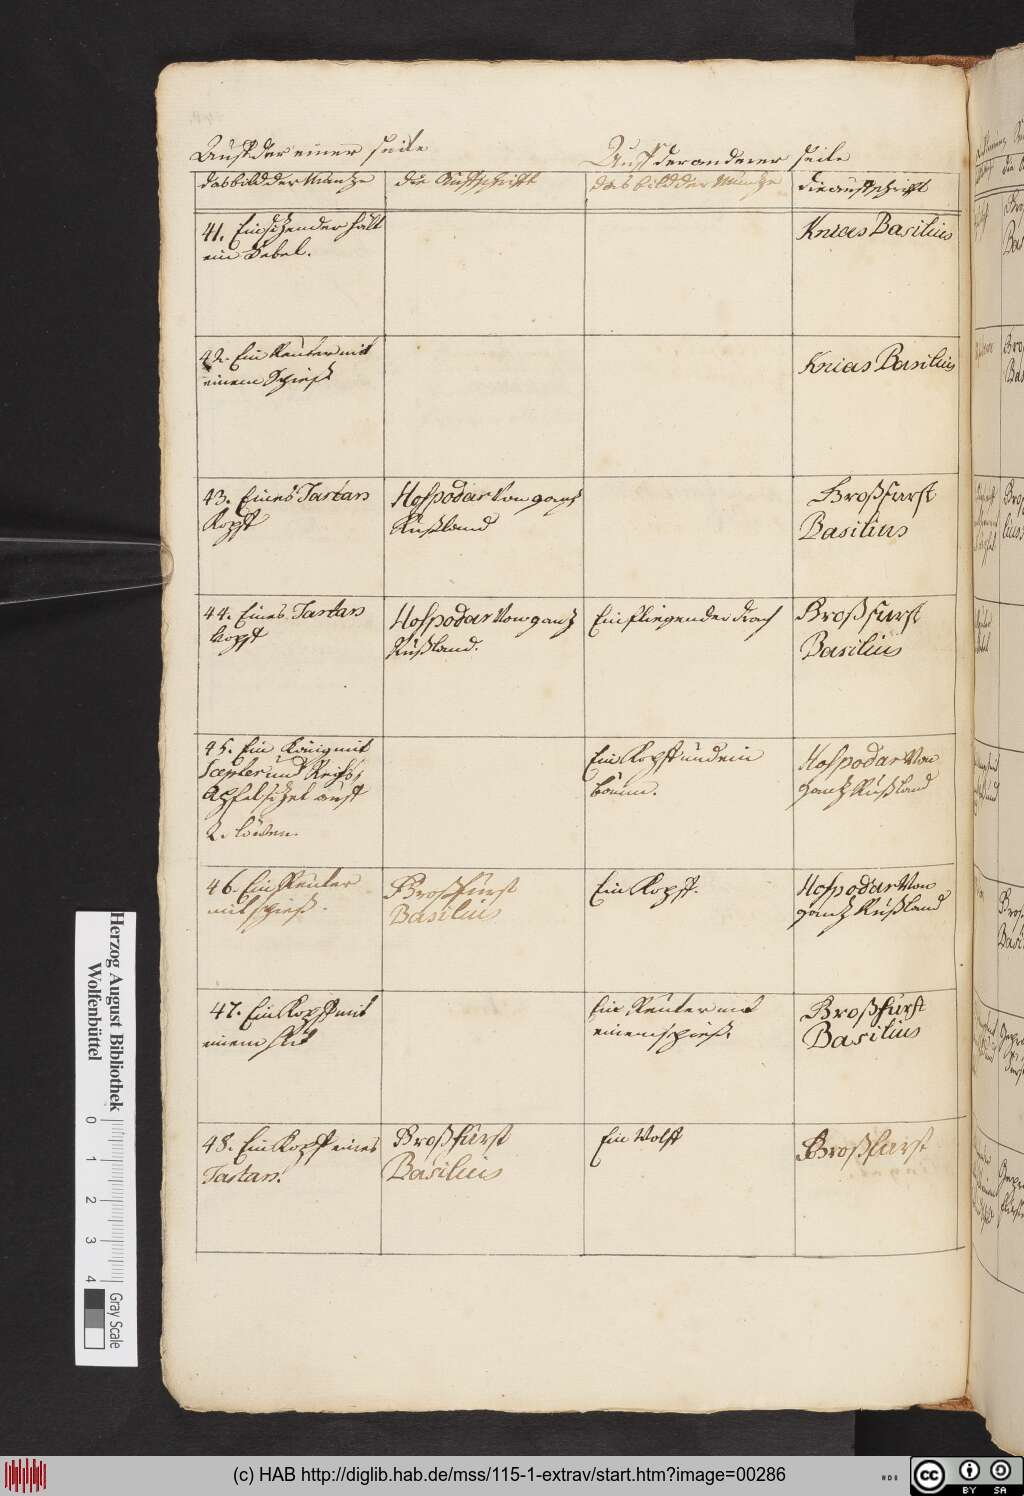 Auff der einer seite
Auff der anderer seite
das bild der Müntze
die Auffschrifft
das bild der Müntze
die auffschrifft
41. Ein sitzender hält
ein Sebel.
Knias Basilius
42. Ein Reuter mit
einem Spieß
Knias Basilius
43. Eines Tartarn
Kopff
Hospodar Von gantz
Rußland
Großfürst
Basilius
44. Eines Tartarn
kopff
Hospodar Von gantz
Rußland.
Ein fliegender drach
Großfürst
Basilius
45. Ein König mit
Scepter und Reichs,
Apfel sitzet auff
2. löwen.
Ein Kopff und ein
baum.
Hospodar Von
gantz Rußland
46. Ein Reuter
mit spieß.
Großfürst
Basilius
Ein Kopff.
Hospodar Von
gantz Rußland
47. Ein Kopff mit
einem hut
Ein Reuter mit
einem spieß.
Großfürst
Basilius
48. Ein Kopff eines
Tartarn.
Großfürst
Basilius
Ein Wolff
Großfürst
Herzog August Bibliothek
Wolfenbüttel
0 1 2 3 4
Gray Scale
(c) HAB http://diglib.hab.de/mss/115-1-extrav/start.htm?image=00286
cc BY SA